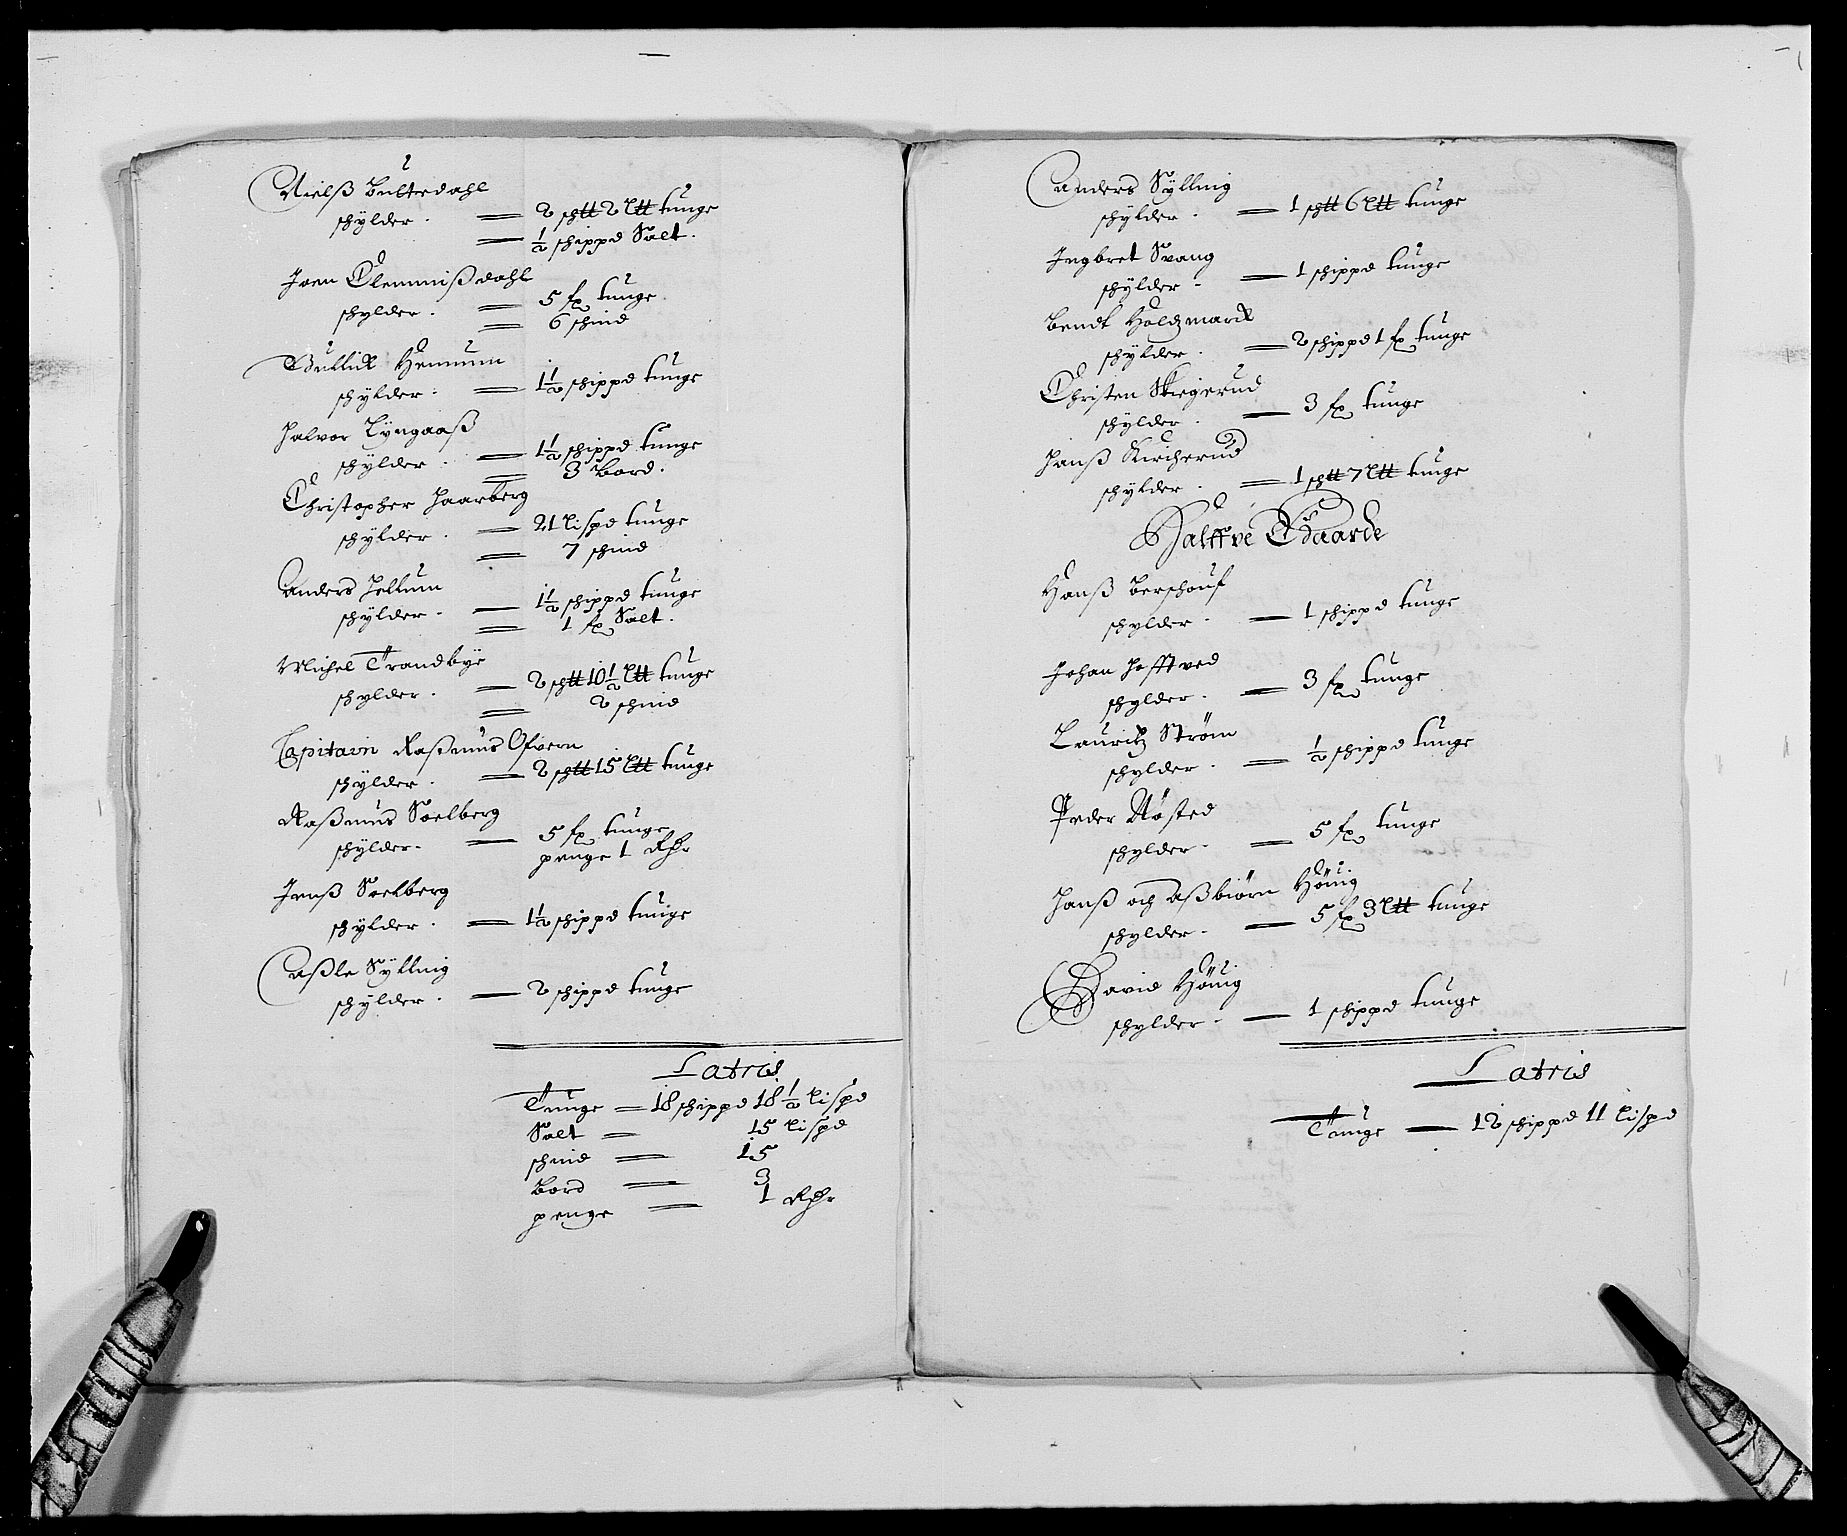 Nielß Bulttedahl
schÿlder. — 2 sch℔ 2 L℔ tunge
— ½ schippd Salt.
Joen Clemmißdahl
schylder. — 5 fr tunge
— 6 schind
Gullich Hennum
schÿlder. — 1½ schippd tunge
Halvor Lÿngaaß
schÿlder. — 1½ schippd tunge
— 3 Bord.
Christopher Haarberg
schÿlder. — 21 Lispd tunge
— 7 schind
Anders Jellum
schÿlder. — 1½ schippd tunge
— 1 fr Salt.
Michel Trandbÿe
schylder. — 2 sch℔ 10½ L℔ tunge
— 2 schind
Capitain Raßmus Ofvern
schÿlder. — 2 sch℔ 15 L℔ tunge
Raßmus Soelberg
schÿlder. — 5 fr tunge
penge 1 Rdr
Jenß Soelberg
schÿlder. — 1½ schippd tunge
Aßle Sÿlling
schÿlder. — 2 schippd tunge
Latris
Tunge — 18 schippd 18½ Lispd
Salt — 15 Lispd
schind — 15
Bord — 3
penge — 1 Rdr
Anders Sÿlling
schÿlder. — 1 sch℔ 6 L℔ tunge
Ingbret Svang
schÿlder. — 1 schippd tunge
Bendt Holdzmarck
schÿlder. — 2 schippd 1 fr tunge
Christen Skiegerud
schÿlder. — 3 fr tunge
Hanß Kircherud
schÿlder. — 1 sch℔ 7 L℔ tunge
Halffve Gaarde
Hanß Berschouf
schylder. — 1 schippd tunge
Johan Hofftved
schylder. — 3 fr tunge
Lauritz Strøm
schylder. — ½ schippd tunge
Peder Røsted
schylder. — 5 fr tunge
Hanß och Aßbiørn Hönig
schylder. — 5 fr 3 L℔ tunge
David Hönig
schylder. — 1 schippd tunge
Latris
Tunge — 12 schippd 11 Lispd